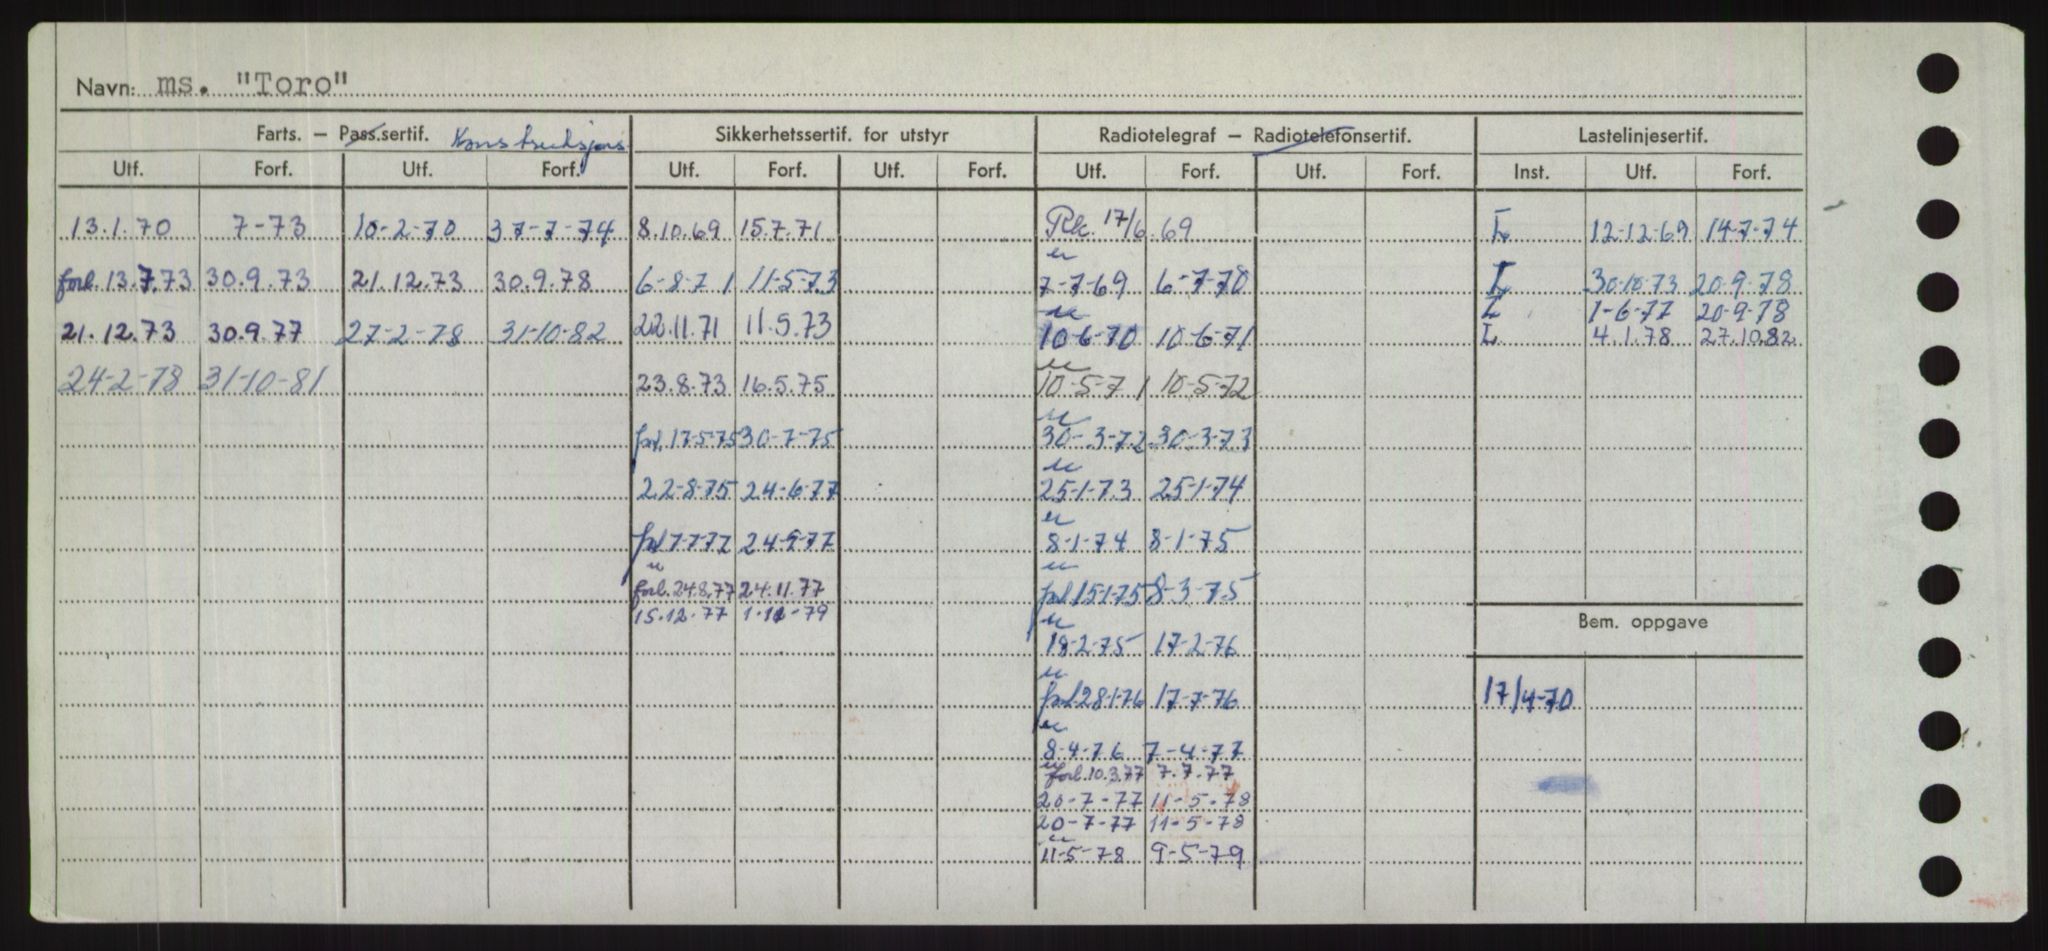 Navn: ms. "Toro"
Farts. – Pass.sertif. Konstruksjons Sikkerhetssertif. for utstyr Radiotelegraf – Radiotelefonsertif. Lastelinjesertif.
Utf. Forf. Utf. Forf. Utf. Forf. Utf. Forf. Utf. Forf. Utf. Forf. Inst. Utf. Forf.
13.1.70 7-73 10-2-70 37-7-74 8.10.69 15.7.71 Rk. 17/6.69 L 12-12-69 14-7-74
forl. 13.7.73 30.9.73 21.12.73 30.9.78 6-8-71 11-5-73 7-7-69 6-7-70 L 30-10-73 20-9-78
L 1-6-77 20-9-78
21.12.73 30.9.77 27-2-78 31-10-82 22.11.71 11.5.73 10-6-70 10-6-71 L 4.1.78 27.10.82
24-2-78 31-10-81 23.8.73 16.5.75 10-5-71 10-5-72
forl. 17-5-75 30-7-75 30-3-72 30-3-73
22-8-75 24-6-77 25-1-73 25-1-74
forl 7-7-77 24-9-77 8-1-74 8-1-75
forl. 24.8.77 24.11.77 forl 15-1-75 8-3-75
15.12.77 1.11-79
Bem. oppgave
18-2-75 17-2-76
forl 28-1-76 17-7-76 17/4-70
8-4-76 7-4-77
forl. 10.3.77 7.7.77
20-7-77 11-5-78
20-7-77 11-5-78
11-5-78 9-5-79